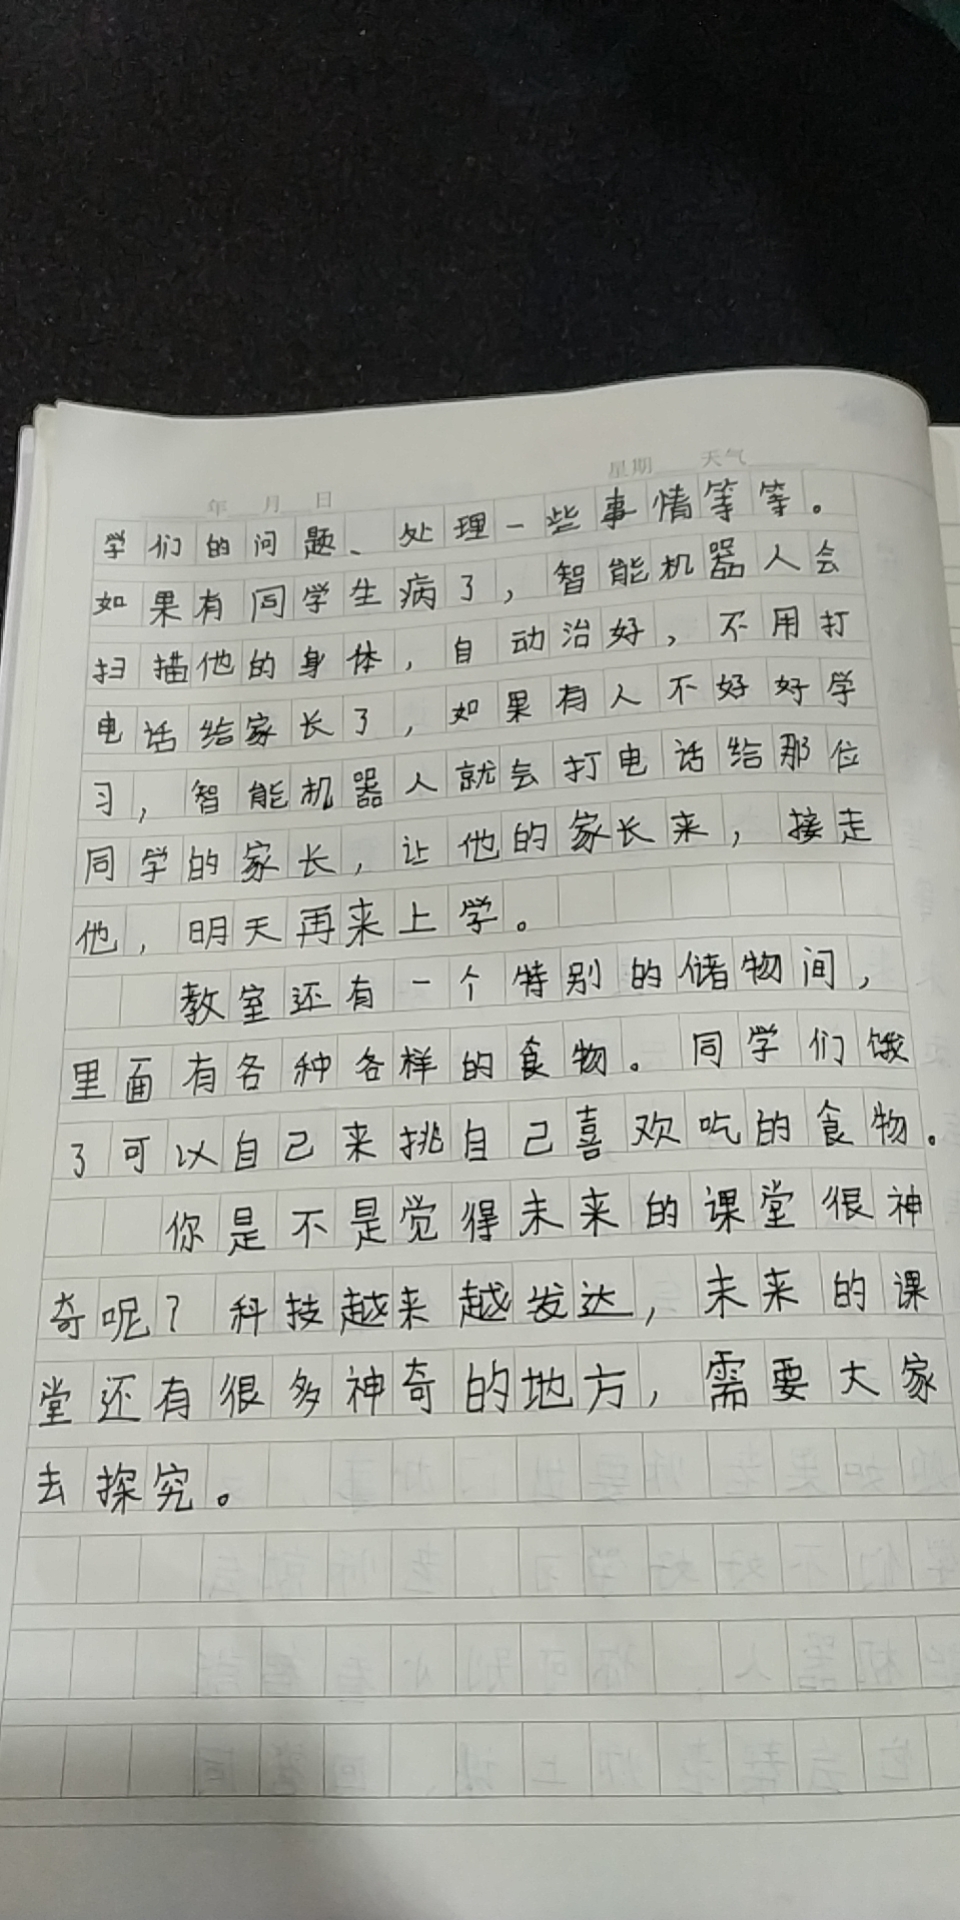 年 月 日 星期 天气
学们的问题、处理一些事情等等。
如果有同学生病了，智能机器人会
扫描他的身体，自动治好，不用打
电话给家长了，如果有人不好好学
习，智能机器人就会打电话给那位
同学的家长，让他的家长来，接走
他，明天再来上学。
教室还有一个特别的储物间，
里面有各种各样的食物。同学们饿
了可以自己来挑自己喜欢吃的食物。
你是不是觉得未来的课堂很神
奇呢？科技越来越发达，未来的课
堂还有很多神奇的地方，需要大家
去探究。